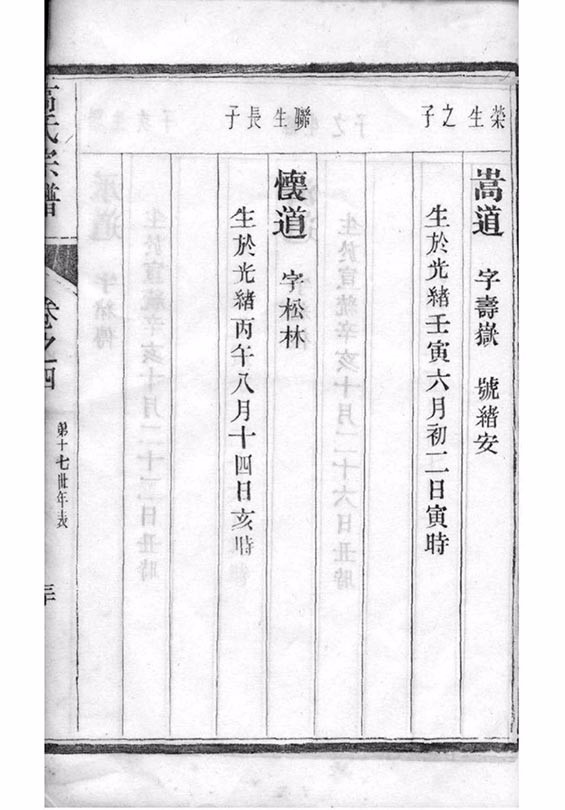 榮生之子
嵩道 字壽嶽 號緒安
生於光緒壬寅六月初二日寅時
聯生長子
懷道 字松林
生於光緒丙午八月十四日亥時
高氏宗譜
卷之四
第十七世年表